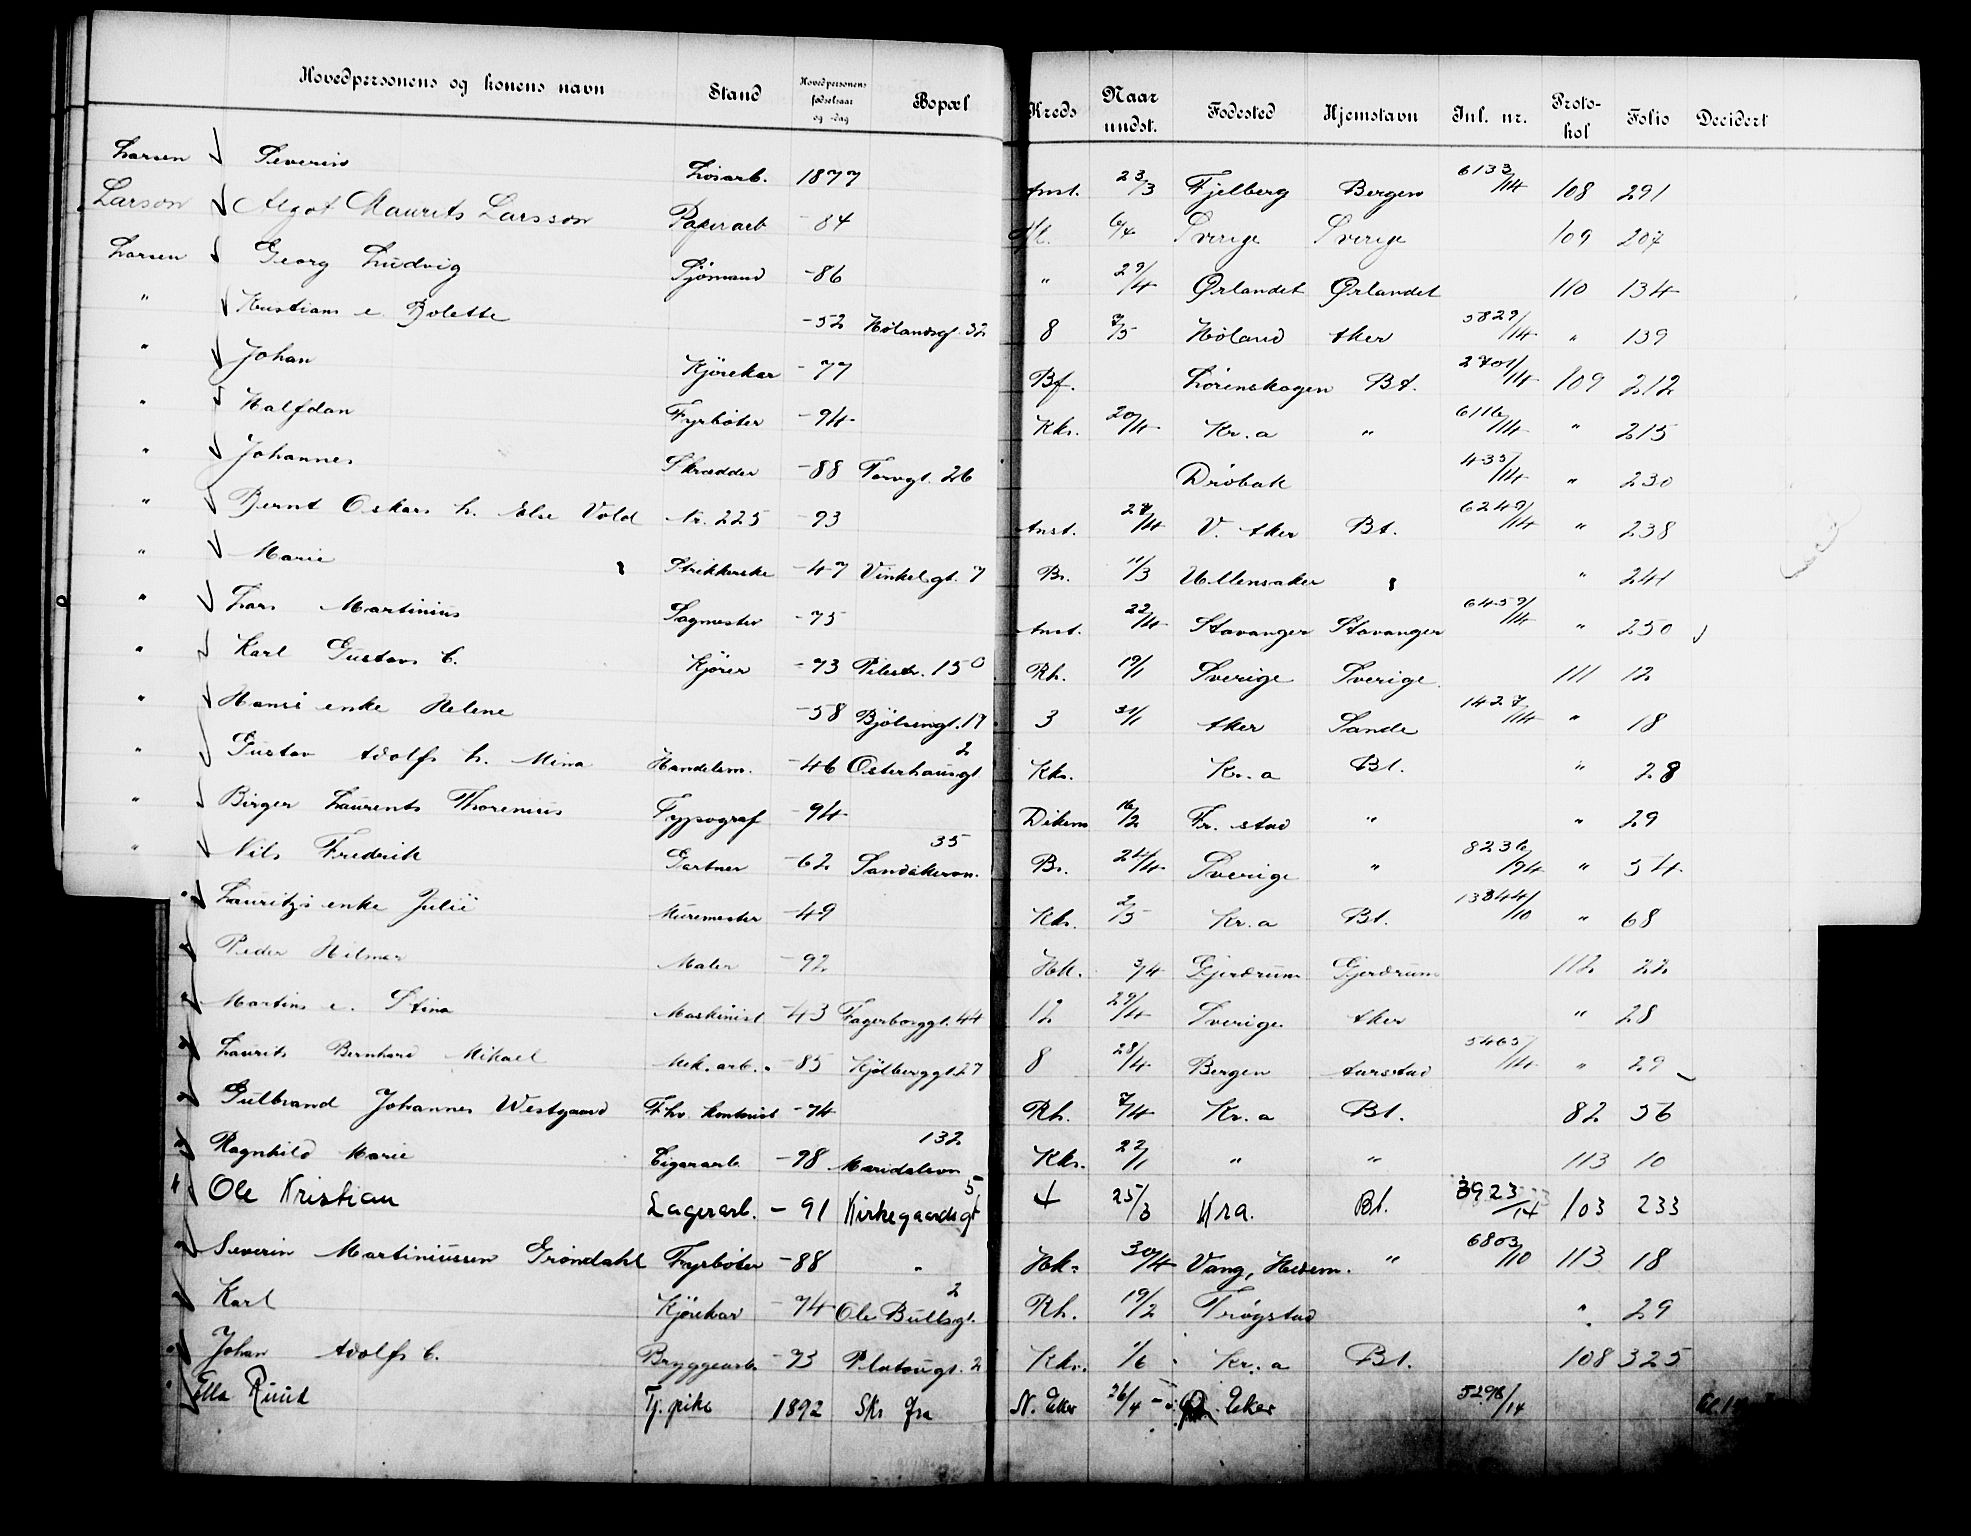 Hovedpersonens og konens navn Stand Hovedpersonens fødselsaar og -dag Bopæl Kreds Naar undst. Fødested Hjemstavn Inl. nr. Proto-kol Folio Decidert
Larsen Severin Løsarb. 1877 Anst. 23/3 Fjelberg Bergen 6133/14 108 291
Larson Algot Maurits Larsson Papirarb - 84 6/4 Sverige Sverige 109 207
Larsen Georg Ludvig Sjømand - 86 " 29/4 Ørlandet Ørlandet 110 134
" Kristians e. Bolette - 52 Hølandsg. 32 8 7/5 Høland Aker 5829/14 " 139
" Johan Kjørekar - 77 Bf. Lørenskogen Bt. 2701/14 109 212
" Halfdan Fyrbøter - 94 Kks. 20/4 Kr.a " 6116/14 " 215
" Johannes Skrædder - 88 Torvgt. 26 Drøbak 435/14 " 230
" Bernt Oskars h. Else Vold Nr. 225 - 93 Anst. 27/4 V. Aker Bt. 6249/14 " 238
" Marie Strikkerske - 47 Vinkelgt. 7 Br. 11/3 Ullensaker " 241
" Lars Martinius Sagmester - 75 Anst. 22/4 Stavanger Stavanger 6459/14 " 250
" Karl Gustavs b. Kjører - 73 Pilestr. 15 Rh. 19/1 Sverige Sverige 111 12
" Hans's enke Helene - 58 Bjølsengt. 17 3 31/1 Aker Sande 1427/14 " 18
" Gustav Adolfs h. Mina Handelsm. - 46 Osterhausgt 2 Kks. Kr.a Bt. " 28
" Birger Laurents Thorenius Typograf - 94 Dikem 16/2 Fr. stad " " 29
" Nils Fredrik Gartner - 62 Sandakerвn. 35 Br. 24/4 Sverige " 8236/94 " 54
" Lauritz's enke Julie Muremester - 49 Kks. 2/5 Kr.a Bt. 13844/10 " 68
" Peder Hilmar Maler - 92 Hk. 3/4 Gjerdrum Gjerdrum 112 22
" Martins e. Stina Maskinist - 43 Fagerborggt. 44 12 29/4 Sverige Aker " 28
" Laurits Bernhard Mikael Mek. arb. - 85 Kjølberggt. 27 8 28/4 Bergen Aurstad 5465/14 " 29
" Gulbrand Johannes Westgaard Fhv. kontorist - 74 Rh. 7/4 Kr.a Bt. 82 56
" Ragnhild Marie Cigararb. - 98 Maridalsvn 132 Kks. 22/1 " " 113 10
" Ole Kristian Lagerarb. - 91 Kirkegaardsgt 5 4 25/3 Kra. Bt. 3923/14 103 233
" Severin Martiniussen Grøndahl Fyrbøter - 88 " Hk. 30/4 Vang, Hedem. " 6803/10 113 18
" Karl Kjørekar - 74 Ole Bullsgt. 2 Rh. 19/2 Trøgstad " 29
" Johan Adolfs b. Bryggearb. - 93 Platougt. 2 Kks. 1/6 Kr.a Bt. 108 325
" Ella Ruud Tj. pike 1892 Sks fra N. Eker 26/4 Eker 5298/14